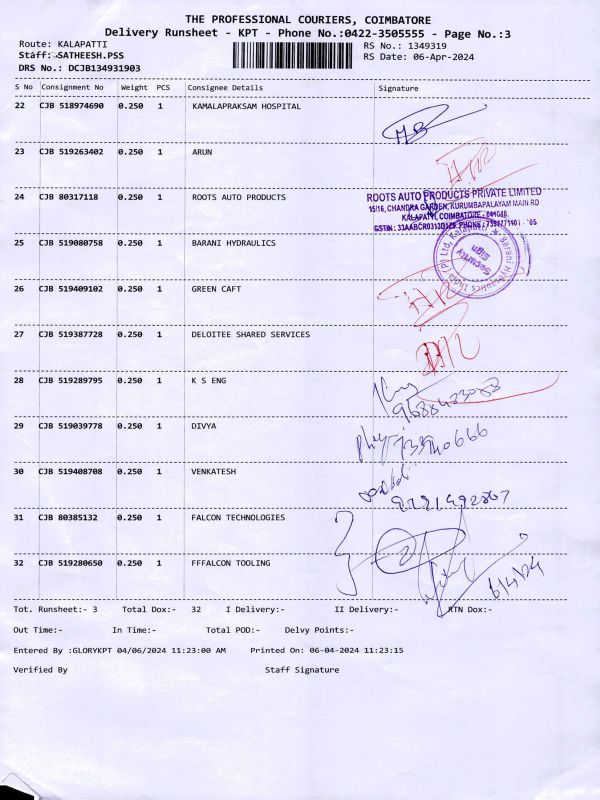 THE PROFESSIONAL COURIERS, COIMBATORE
Delivery Runsheet - KPT - Phone No.:0422-3505555 - Page No.:3
Route: KALAPATTI RS No.: 1349319
Staff: SATHEESH.PSS RS Date: 06-Apr-2024
DRS No.: DCJB134931903
S No Consignment No Weight PCS Consignee Details Signature
22 CJB 518974690 0.250 1 KAMALAPRAKSAM HOSPITAL
23 CJB 519263402 0.250 1 ARUN
24 CJB 80317118 0.250 1 ROOTS AUTO PRODUCTS
ROOTS AUTO PRODUCTS PRIVATE LIMITED
15/16, CHANDRA GARDEN, KURUMBAPALAYAM MAIN RD
KALAPATTI, COIMBATORE - 641048.
25 CJB 519080758 0.250 1 BARANI HYDRAULICS
Barani Hydraulics India (P) Ltd, Kalapatti
Security
Sign
26 CJB 519409102 0.250 1 GREEN CAFT
27 CJB 519387728 0.250 1 DELOITEE SHARED SERVICES
28 CJB 519289795 0.250 1 K S ENG
29 CJB 519039778 0.250 1 DIVYA
30 CJB 519408708 0.250 1 VENKATESH
31 CJB 80385132 0.250 1 FALCON TECHNOLOGIES
32 CJB 519280650 0.250 1 FFFALCON TOOLING
6/4/24
Tot. Runsheet:- 3 Total Dox:- 32 I Delivery:- II Delivery:- RTN Dox:-
Out Time:- In Time:- Total POD:- Delvy Points:-
Entered By :GLORYKPT 04/06/2024 11:23:00 AM Printed On: 06-04-2024 11:23:15
Verified By Staff Signature